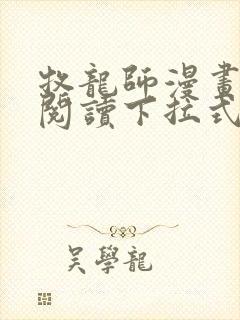 牧龍師漫畫
閱讀下拉式
吴學龍